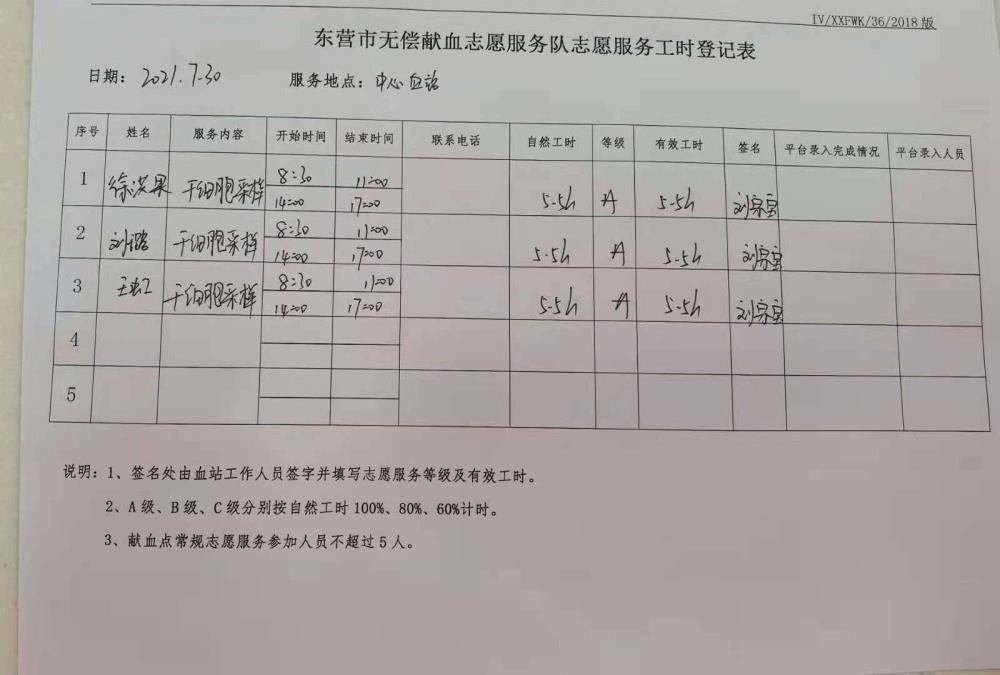 IV/XXFWK/36/2018版
东营市无偿献血志愿服务队志愿服务工时登记表
日期: 2021.7.30 服务地点: 中心血站
序号 姓名 服务内容 开始时间 结束时间 联系电话 自然工时 等级 有效工时 签名 平台录入完成情况 平台录入人员
1 徐洪果 干细胞采样 8:30 11:00 5.5h A 5.5h 刘宗宝
14:00 17:00
2 刘璐 干细胞采样 8:30 11:00 5.5h A 5.5h 刘宗宝
14:00 17:00
3 王虹 干细胞采样 8:30 11:00 5.5h A 5.5h 刘宗宝
14:00 17:00
4
5
说明: 1、签名处由血站工作人员签字并填写志愿服务等级及有效工时。
2、A级、B级、C级分别按自然工时100%、80%、60%计时。
3、献血点常规志愿服务参加人员不超过5人。